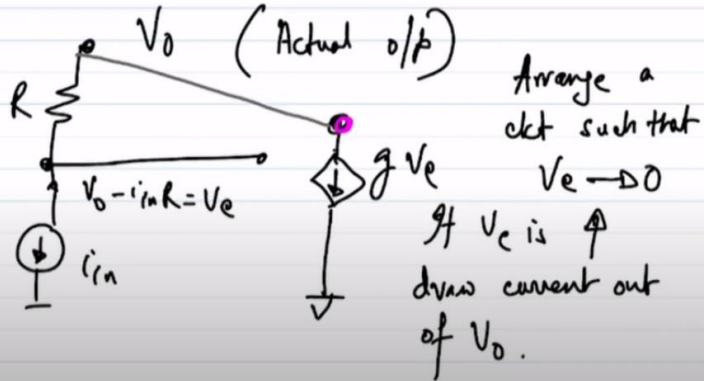 V₀ (Actual o/p)
R
V₀ - i_in R = Ve
i_in
g Ve
Arrange a
ckt such that
Ve → 0
If Ve is ↑
draw current out
of V₀.